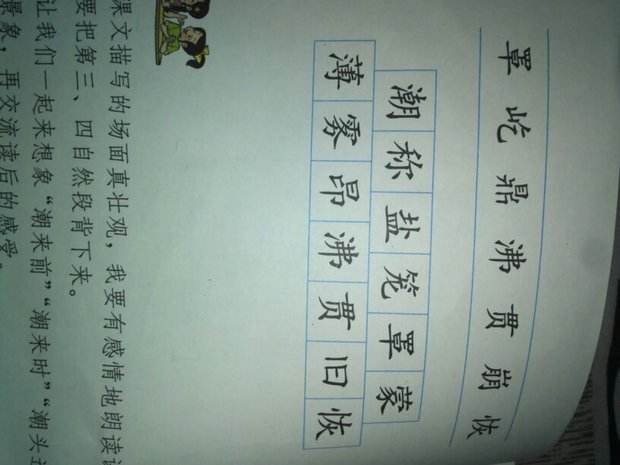 罩屹鼎沸贯崩恢
潮称盐笼罩蒙
薄雾昂沸贯旧恢
课文描写的场面真壮观，我要有感情地朗读
要把第三、四自然段背下来。
让我们一起来想象“潮来前”“潮来时”“潮头
景象，再交流读后的感受。